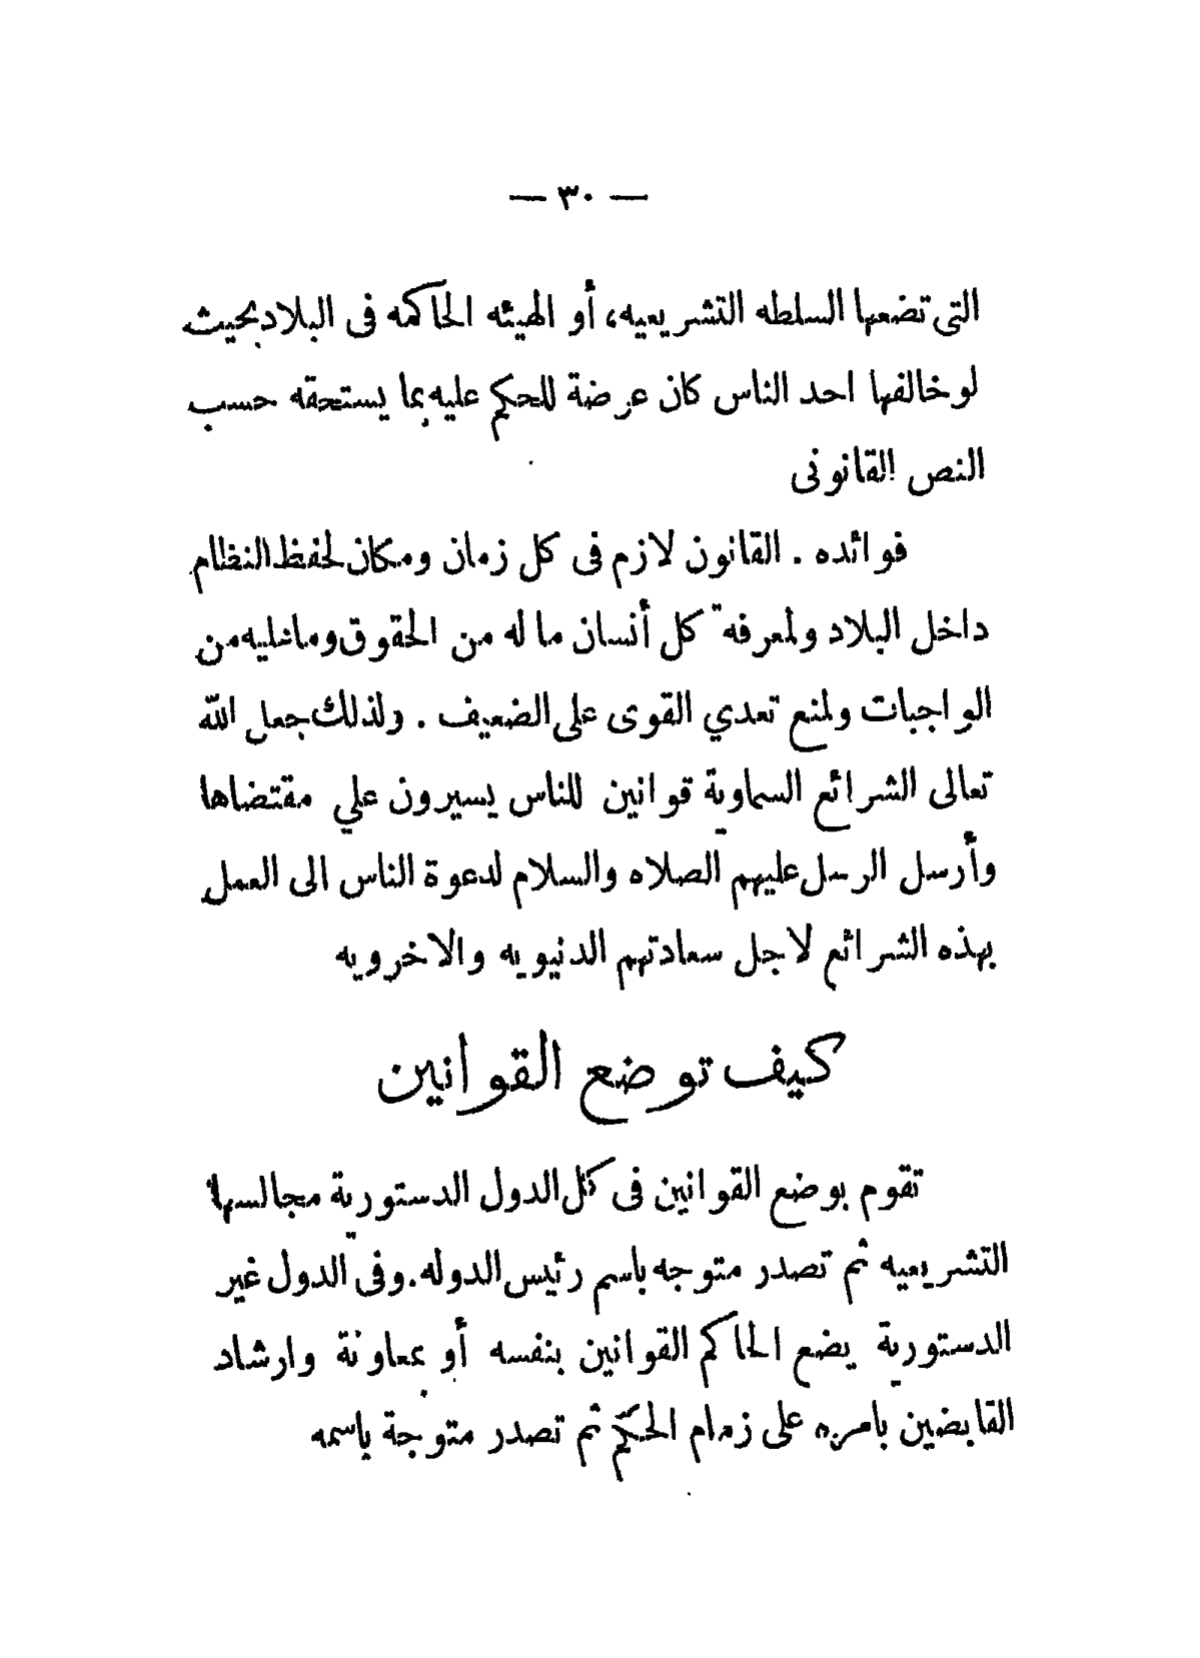 — ٣٠ —
التى تضعها السلطه التشريعيه، أو الهيئه الحاكمه فى البلاد بحيث
لو خالفها احد الناس كان عرضة للحكم عليه بما يستحقه حسب
النص القانونى
فوائده . القانون لازم فى كل زمان ومكان لحفظ النظام
داخل البلاد ولمعرفة كل أنسان ما له من الحقوق وما عليه من
الواجبات ولمنع تعدي القوى على الضعيف . ولذلك جعل الله
تعالى الشرائع السماوية قوانين للناس يسيرون علي مقتضاها
وأرسل الرسل عليهم الصلاه والسلام لدعوة الناس الى العمل
بهذه الشرائع لاجل سعادتهم الدنيويه والاخرويه
كيف توضع القوانين
تقوم بوضع القوانين فى كل الدول الدستورية مجالسها
التشريعيه ثم تصدر متوجه باسم رئيس الدوله . وفى الدول غير
الدستورية يضع الحاكم القوانين بنفسه أو بمعاونة وارشاد
القابضين بامره على زمام الحكم ثم تصدر متوجة باسمه